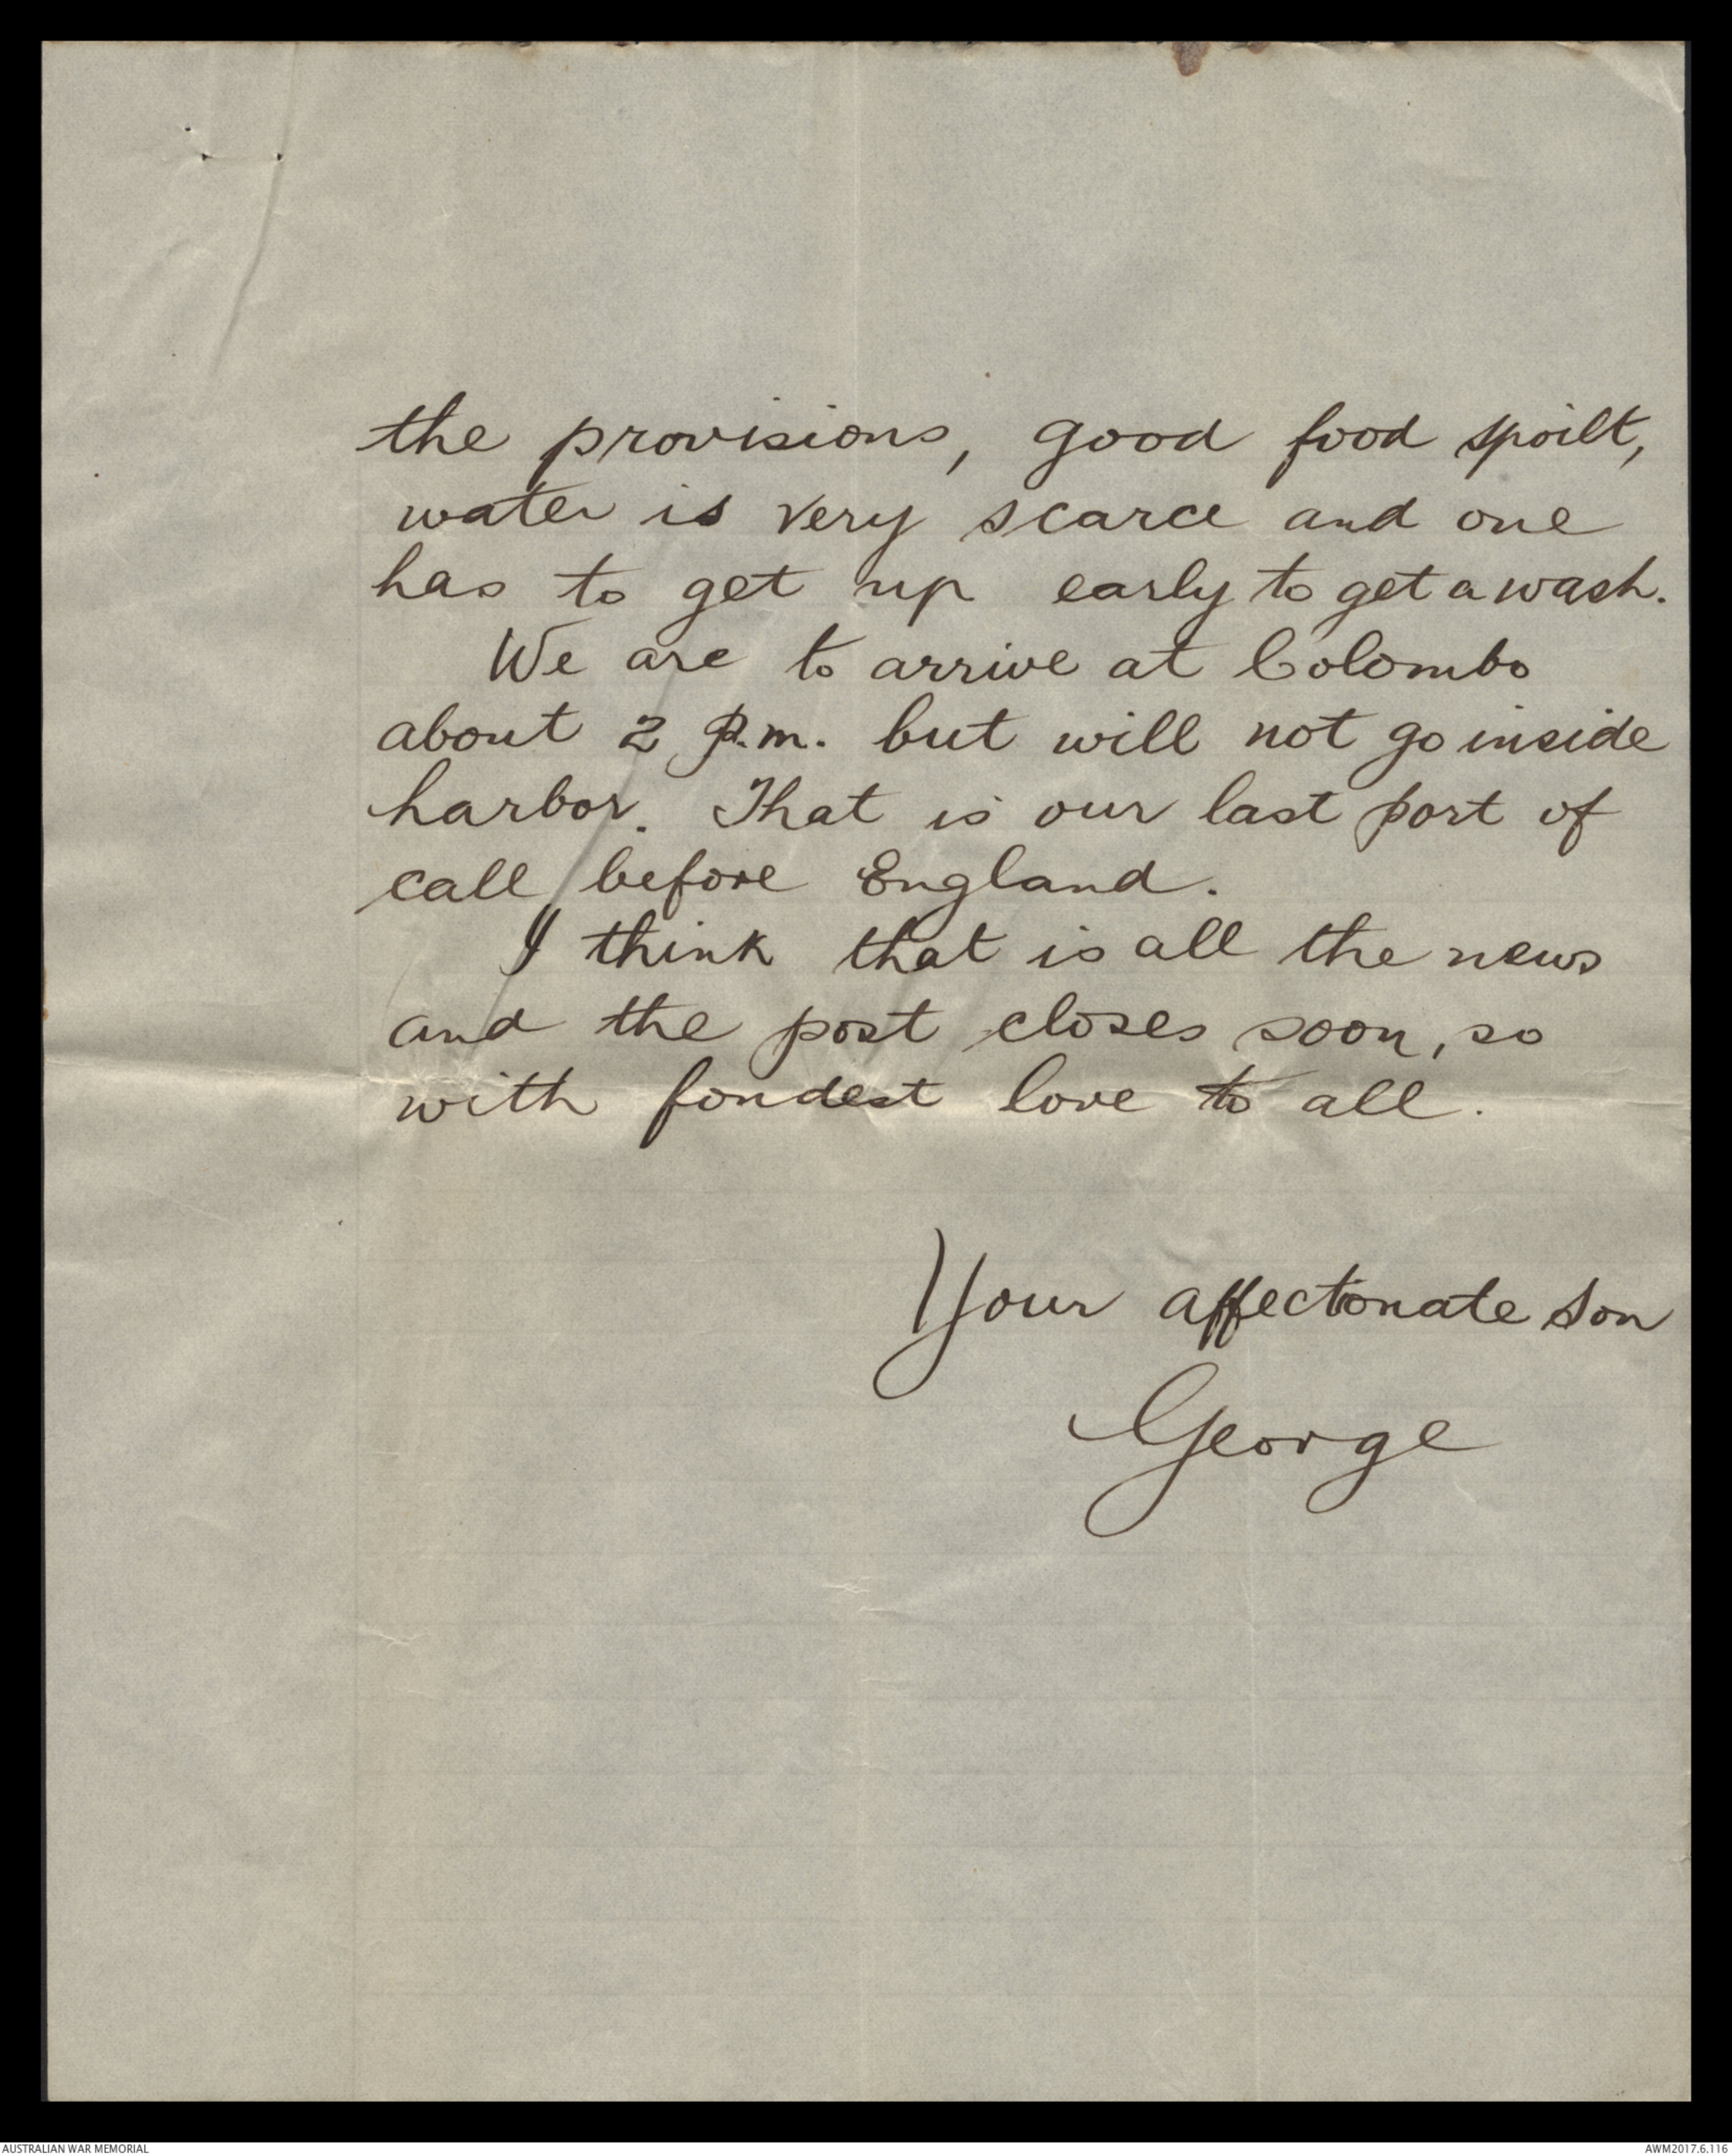 the provisions, good food spoilt,
water is very scarce and one
has to get up early to get a wash.
We are to arrive at Colombo
about 2 p.m. but will not go inside
harbor. That is our last port of
call before England.
I think that is all the news
and the post closes soon, so
with fondest love to all.
Your affectonate son
George
AUSTRALIAN WAR MEMORIAL
AWM2017.6.116